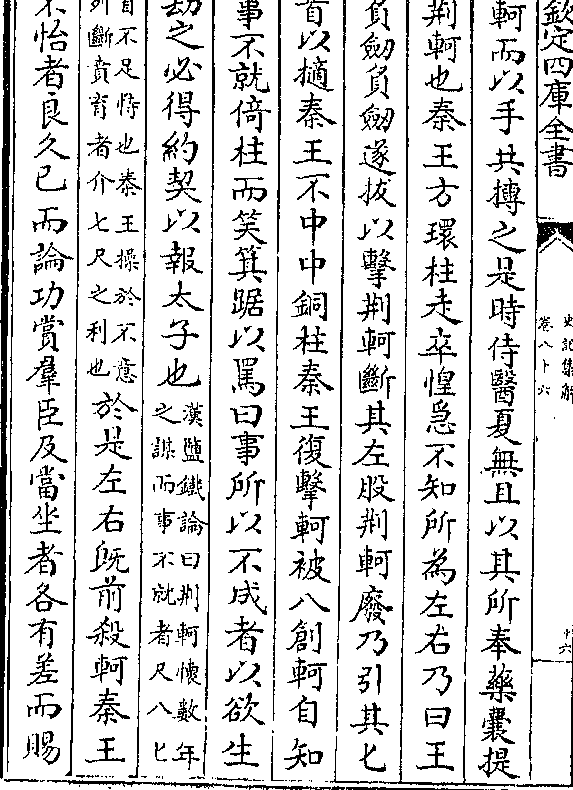 欽定四庫全書
史記集解
卷八十六
軻而以手共搏之是時侍醫夏無且以其所奉藥囊提
荆軻也秦王方環柱走卒惶急不知所為左右乃曰王
負劒負劒遂拔以擊荆軻斷其左股荆軻廢乃引其匕
首以擿秦王不中中銅柱秦王復擊軻被八創軻自知
事不就倚柱而笑箕踞以罵曰事所以不成者以欲生
劫之必得約契以報太子也漢鹽鐵論曰荆軻懷數年
之謀而事不就者尺八匕
首不足恃也秦王操於不意
列斷賁育者介七尺之利也於是左右既前殺軻秦王
不怡者良久已而論功賞羣臣及當坐者各有差而賜